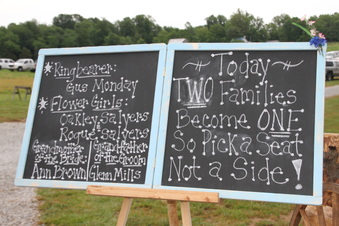 Ringbearer:
Gus Monday
Flower Girls:
Oakley Salyers
Rogue Salyers
Grandmother Grandfather
of the Bride: of the Groom
Ann Brown Glenn Mills
Today
TWO Families
Become ONE
So Pick a Seat
Not a Side!